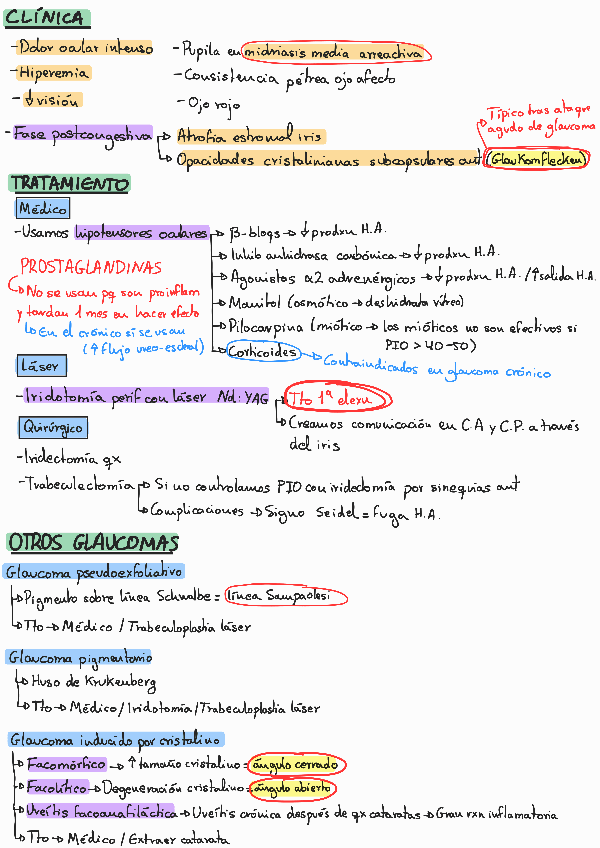 CLÍNICA
- Dolor ocular intenso
- Hiperemia
- ↓ visión
- Pupila en midriasis media arreactiva
- Consistencia pétrea ojo afecto
- Ojo rojo
- Fase postcongestiva → Atrofia estromal iris
→ Opacidades cristalinianas subcapsulares ant (Glaukomflecken)
Típico tras ataque
agudo de glaucoma
TRATAMIENTO
Médico
- Usamos hipotensores oculares → β-bloqs → ↓ prodxn H.A.
→ Inhib anhidrasa carbónica → ↓ prodxn H.A.
→ Agonistas α2 adrenérgicos → ↓ prodxn H.A. / ↑ salida H.A.
→ Manitol (osmótico → deshidrata vítreo)
→ Pilocarpina (miótico → los mióticos no son efectivos si
PIO > 40-50)
→ Corticoides → Contraindicados en glaucoma crónico
PROSTAGLANDINAS
→ No se usan pq son proinflam
y tardan 1 mes en hacer efecto
→ En el crónico sí se usan
(↑ flujo uveo-escleral)
Láser
- Iridotomía perif con láser Nd:YAG → Tto 1ª elexn
→ Creamos comunicación en C.A y C.P. a través
del iris
Quirúrgico
- Iridectomía qx
- Trabeculectomía → Si no controlamos PIO con iridectomía por sinequias ant
→ Complicaciones → Signo Seidel = Fuga H.A.
OTROS GLAUCOMAS
Glaucoma pseudoexfoliativo
→ Pigmento sobre línea Schwalbe = línea Sampaolesi
→ Tto → Médico / Trabeculoplastia láser
Glaucoma pigmentario
→ Huso de Krukenberg
→ Tto → Médico / Iridotomía / Trabeculoplastia láser
Glaucoma inducido por cristalino
→ Facomórfico → ↑ tamaño cristalino = ángulo cerrado
→ Facolítico → Degeneración cristalino = ángulo abierto
→ Uveítis facoanafiláctica → Uveítis crónica después de qx cataratas → Gran rxn inflamatoria
→ Tto → Médico / Extraer catarata